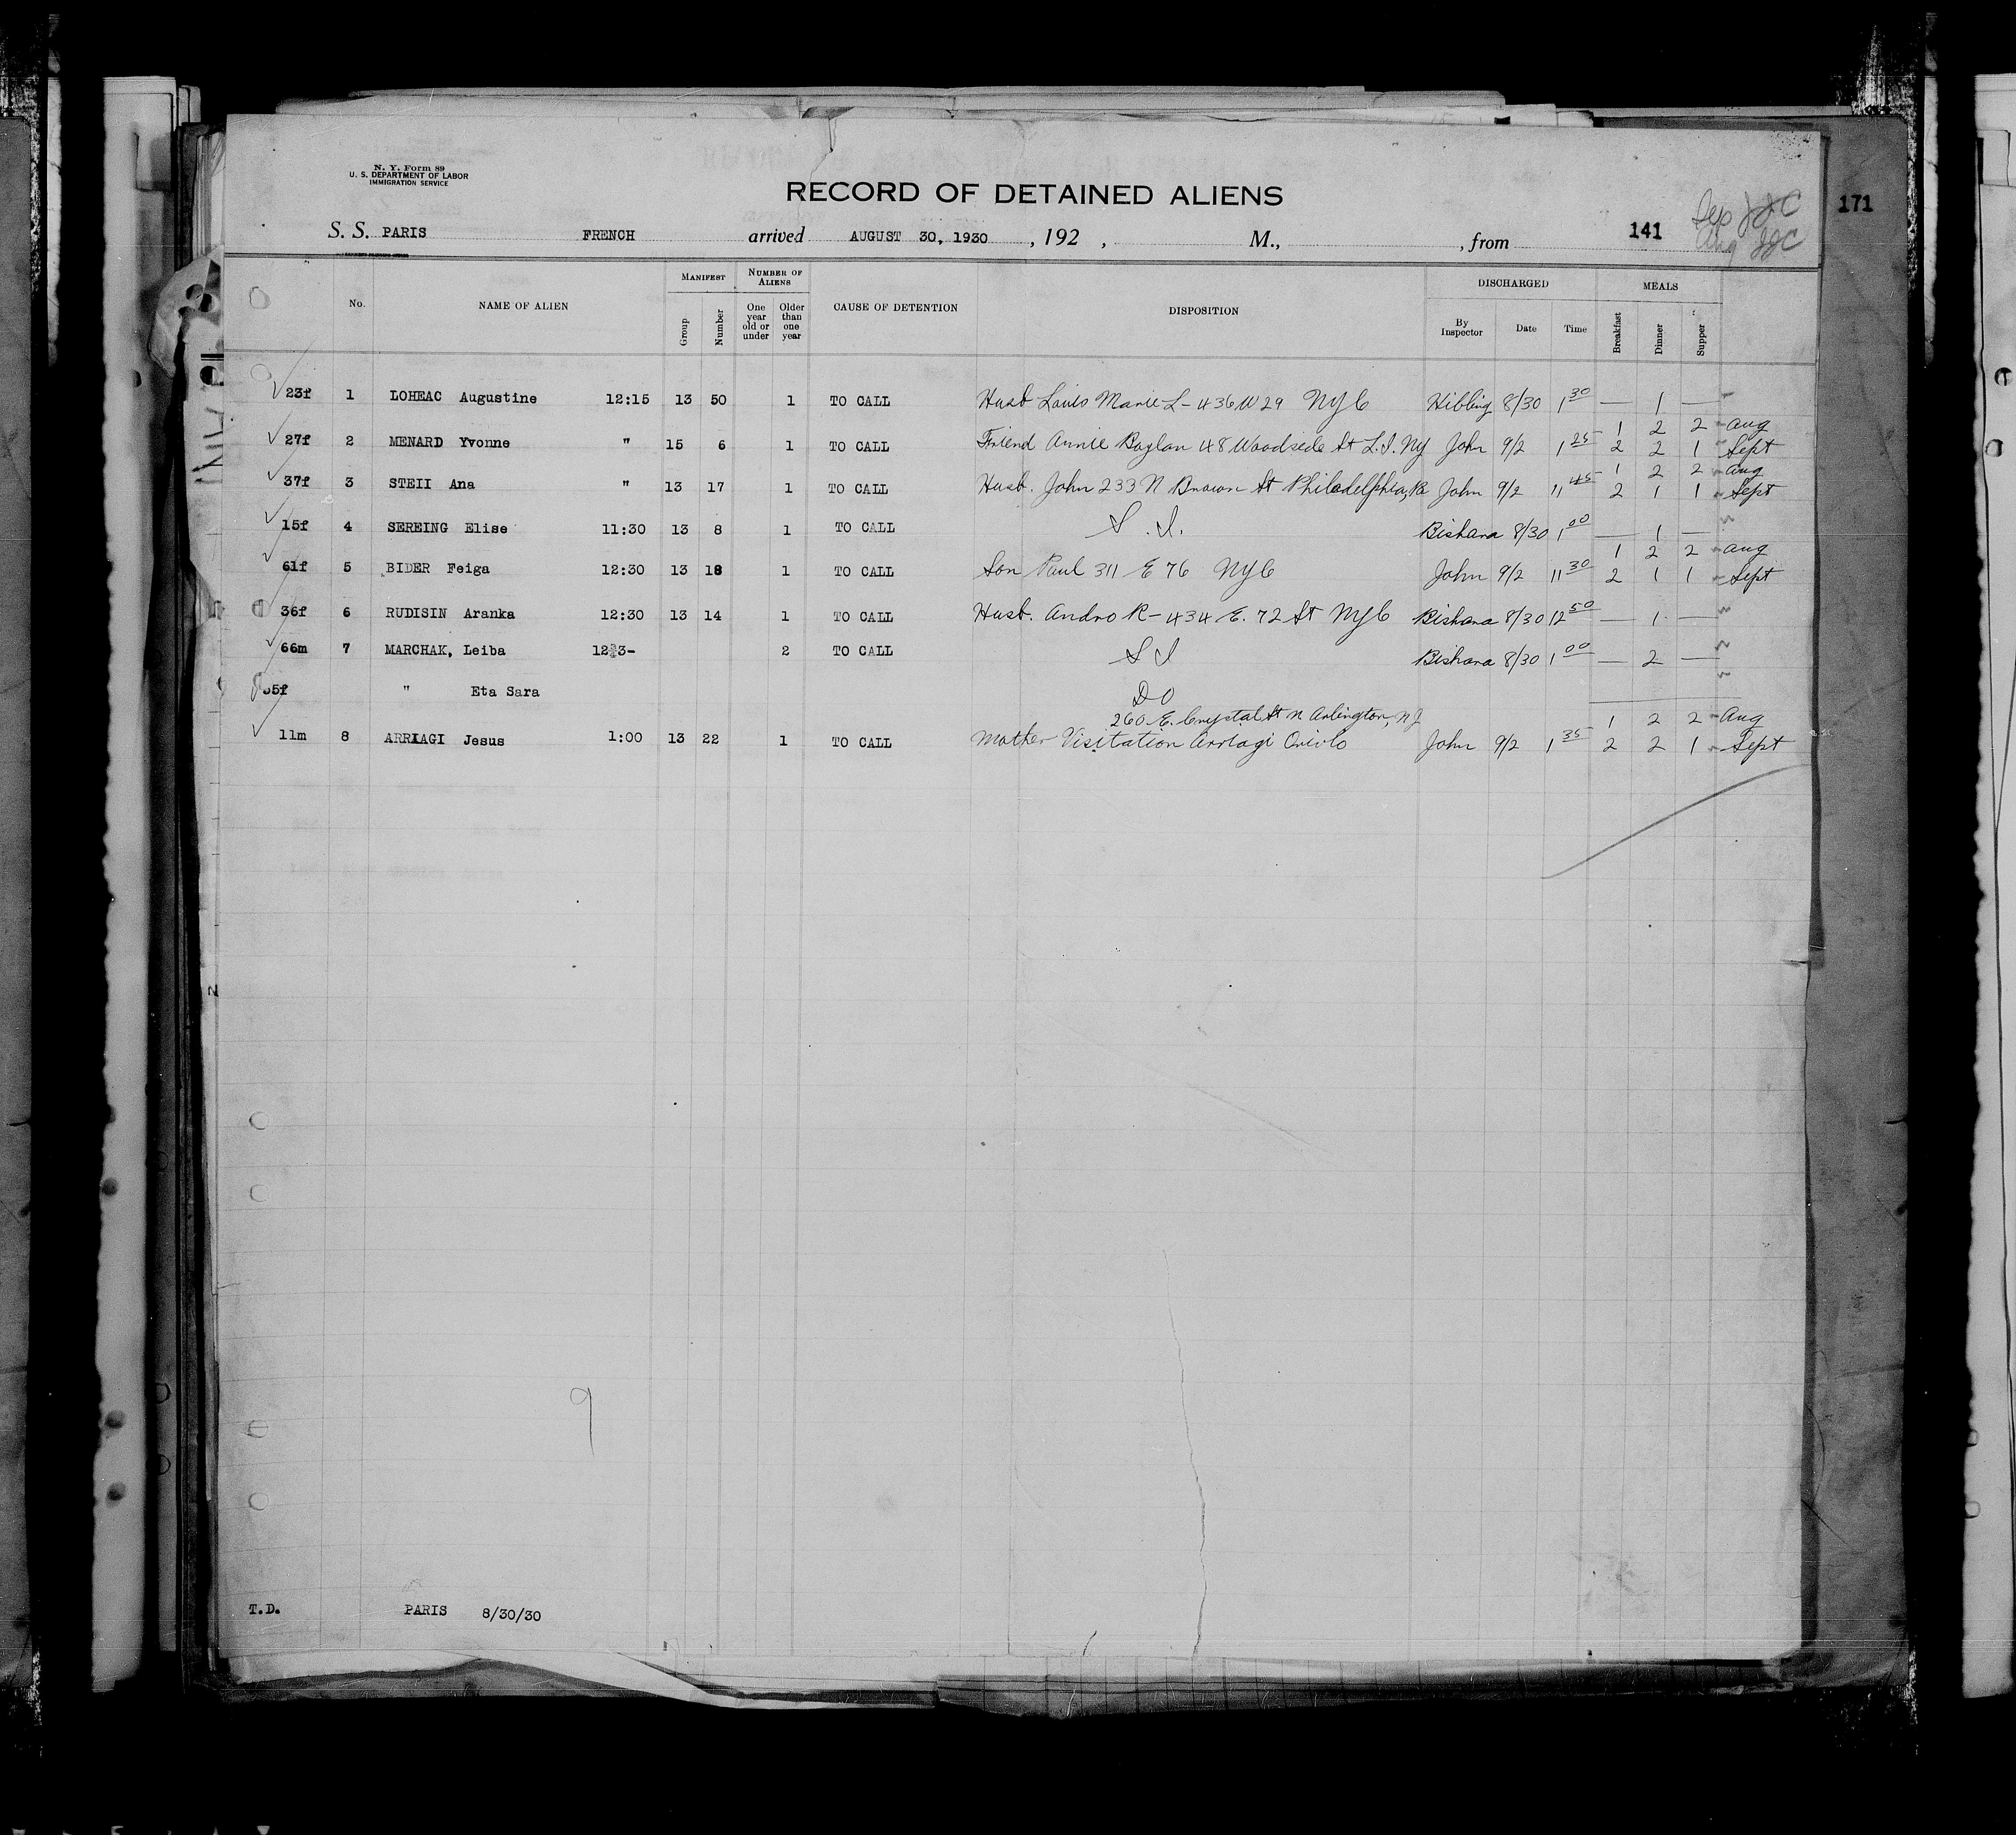 N. Y. Form 89
U. S. DEPARTMENT OF LABOR
IMMIGRATION SERVICE
RECORD OF DETAINED ALIENS
171
S. S. PARIS FRENCH arrived AUGUST 30, 1930 , 192 , M., , from 141
Aug JJC
No. NAME OF ALIEN MANIFEST Group Number NUMBER OF ALIENS One year old or under Older than one year CAUSE OF DETENTION DISPOSITION DISCHARGED By Inspector Date Time MEALS Breakfast Dinner Supper
23f 1 LOHEAC Augustine 12:15 13 50 1 TO CALL Husb Louis Marie L- 436 W 29 NYC Hibling 8/30 1 30 — 1 —
1 2 2 Aug
27f 2 MENARD Yvonne " 15 6 1 TO CALL Friend Annie Boylan 48 Woodside St L.I. NY John 9/2 1 25 2 2 1 Sept
1 2 2 Aug
37f 3 STEII Ana " 13 17 1 TO CALL Husb. John 233 N Brown St Philadelphia, Pa John 9/2 11 45 2 1 1 Sept
15f 4 SEREING Elise 11:30 13 8 1 TO CALL S.I. Bishara 8/30 1 00 — 1 —
1 2 2 Aug
61f 5 BIDER Feiga 12:30 13 18 1 TO CALL Son Paul 311 E 76 NYC John 9/2 11 30 2 1 1 Sept
36f 6 RUDISIN Aranka 12:30 13 14 1 TO CALL Husb. Andro R- 434 E. 72 St NYC Bishara 8/30 12 50 — 1 —
66m 7 MARCHAK, Leiba 2 TO CALL S I Bishara 8/30 1 00 — 2 —
" Eta Sara DO
260 E. Crystal St N Arlington, NJ 1 2 2 Aug
11m 8 ARRIAGI Jesus 1:00 13 22 1 TO CALL Mother Visitation Arriagi John 9/2 1 35 2 2 1 Sept
9
T.D. PARIS 8/30/30